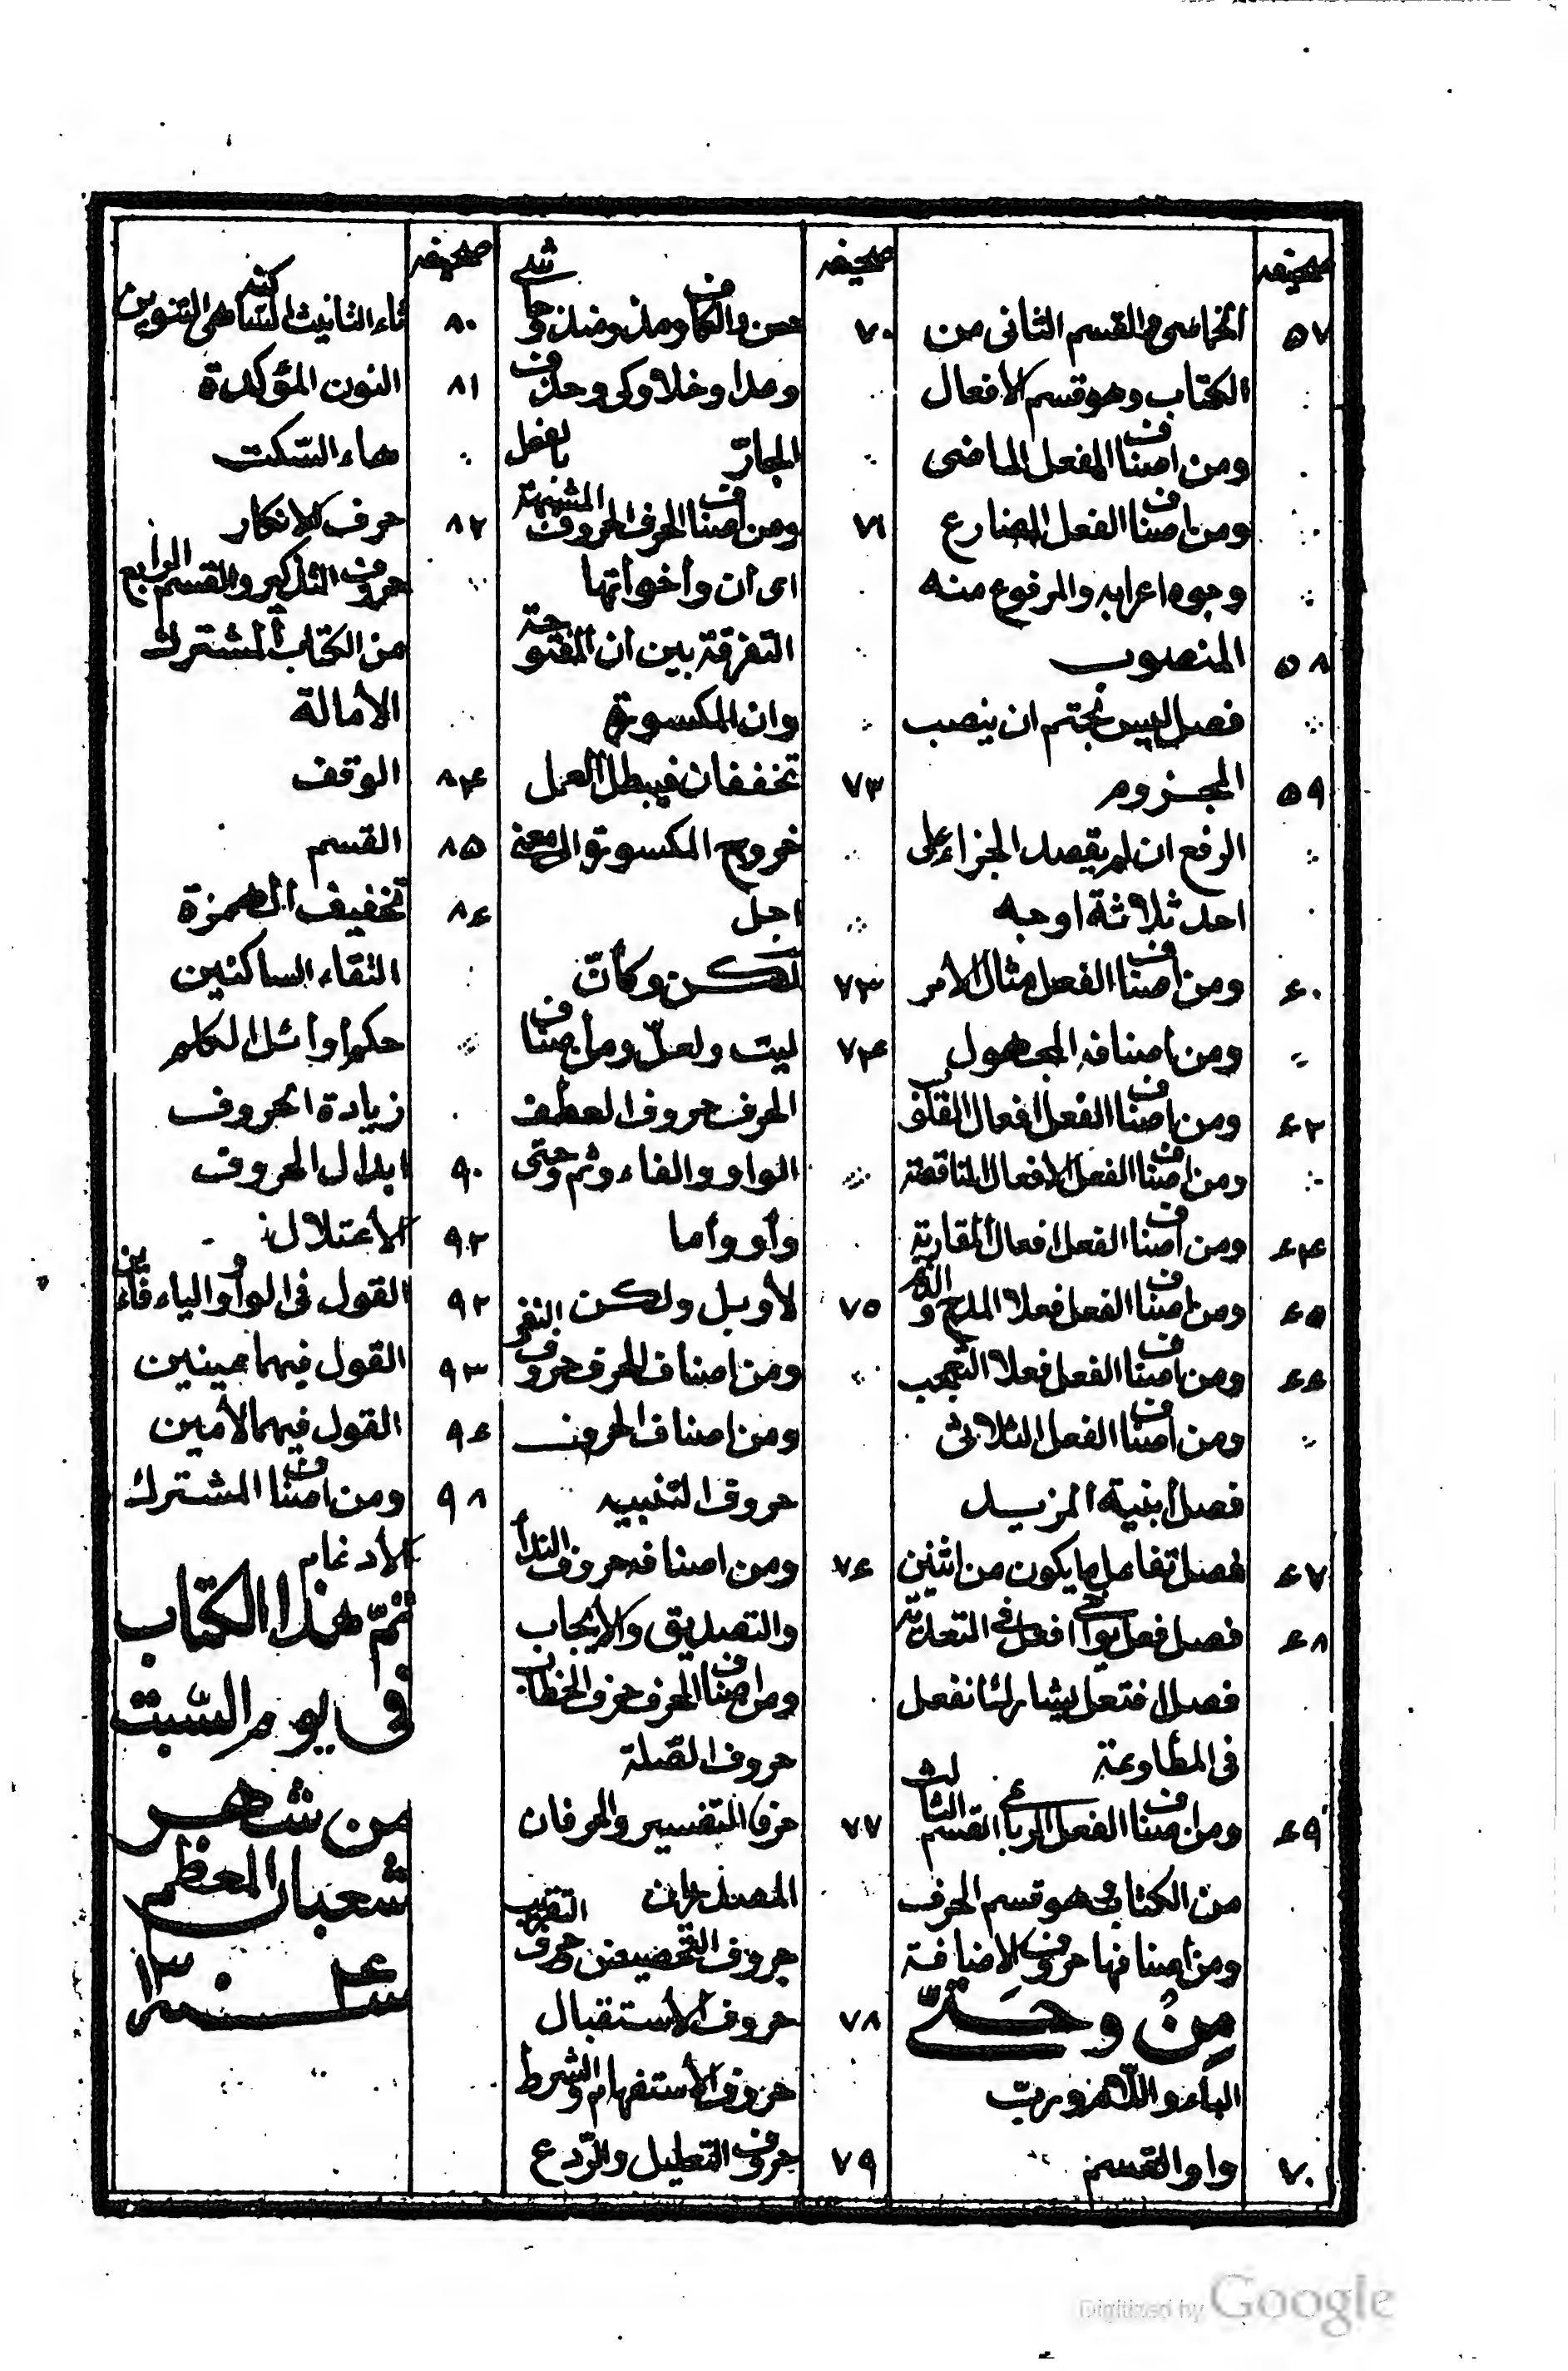 صحيفه
٥٧ الخماسى والقسم الثانى من
الكتاب وهو قسم الافعال
ومن اصناف الفعل الماضى
ومن اصناف الفعل المضارع
وجوه اعرابه والمرفوع منه
٥٨ المنصوب
فصل ليس بحتم ان ينصب
٥٩ المجزوم
الرفع ان لم يقصد الجزاء على
احد ثلاثة اوجه
٦٠ ومن اصناف الفعل مثال الأمر
ومن اصنافه المجهول
٦٢ ومن اصناف الفعل افعال القلوب
ومن اصناف الفعل الافعال الناقصة
٦٤ ومن اصناف الفعل افعال المقاربة
٦٥ ومن اصناف الفعل فعلا المدح والذم
٦٦ ومن اصناف الفعل فعلا التعجب
ومن اصناف الفعل الثلاثى
فصل أبنية المزيد
٦٧ فصل تفاعل لما يكون من اثنين
٦٨ فصل فعل يواخى افعل فى التعدية
فصل افتعل يشارك انفعل
فى المطاوعة
٦٩ ومن اصناف الفعل الرباعى القسم الثالث
من الكتاب وهو قسم الحرف
ومن اصنافها حروف الاضافة
مِنْ وحَتّى
الباء واللام وربّ
٧٠ واو القسم
صحيفه
٧٠ عن والكاف ومذ ومنذ وحاشى
وعدا وخلا وكى وحذف
الجارّ بالفعل
٧١ ومن اصناف الحرف الحروف المشبهة
اى ان وأخواتها
التفرقة بين ان المفتوحة
وان المكسورة
٧٣ تخففان فيبطل العمل
خروج المكسورة الى معنى
اجل
٧٣ لكن وكأنّ
٧٤ ليت ولعلّ ومن أصناف
الحرف حروف العطف
الواو والفاء وثم وحتى
وأو وأما
٧٥ لا وبل ولكن
ومن اصناف الحرف حروف النفى
ومن اصناف الحروف
حروف التنبيه
٧٦ ومن اصنافه حروف الندأ
والتصديق والأيجاب
ومن اصناف الحرف حرف الخطاب
حروف الصّلة
٧٧ حرفا التفسير والحرفان
المصدريان
حروف التحضيض وحرف التقريب
٧٨ حروف الأستقبال
حروف الأستفهام والشرط
٧٩ حروف التعليل والرّدع
صحيفه
٨٠ تاء التانيث الساكنة هى التنوين
٨١ النون المؤكدة
هاء السّكت
٨٢ حرف الانكار
حروف التذكير والقسم الرابع
من الكتاب المشترك
الأمالة
٨٤ الوقف
٨٥ القسم
٨٦ تخفيف الهمزة
التقاء الساكنين
حكم أوائل الكلم
زيادة الحروف
٩٠ ابدال الحروف
٩٢ الأعتلال
٩٢ القول فى الواو والياء فائين
٩٣ القول فيهما عينين
٩٦ القول فيهما لأمين
٩٨ ومن اصناف المشترك
الأدغام
تمّ هذا الكتاب
فى يوم السّبت
من شهر
شعبان المعظم
سنة ١٣٠٤
Digitized by Google